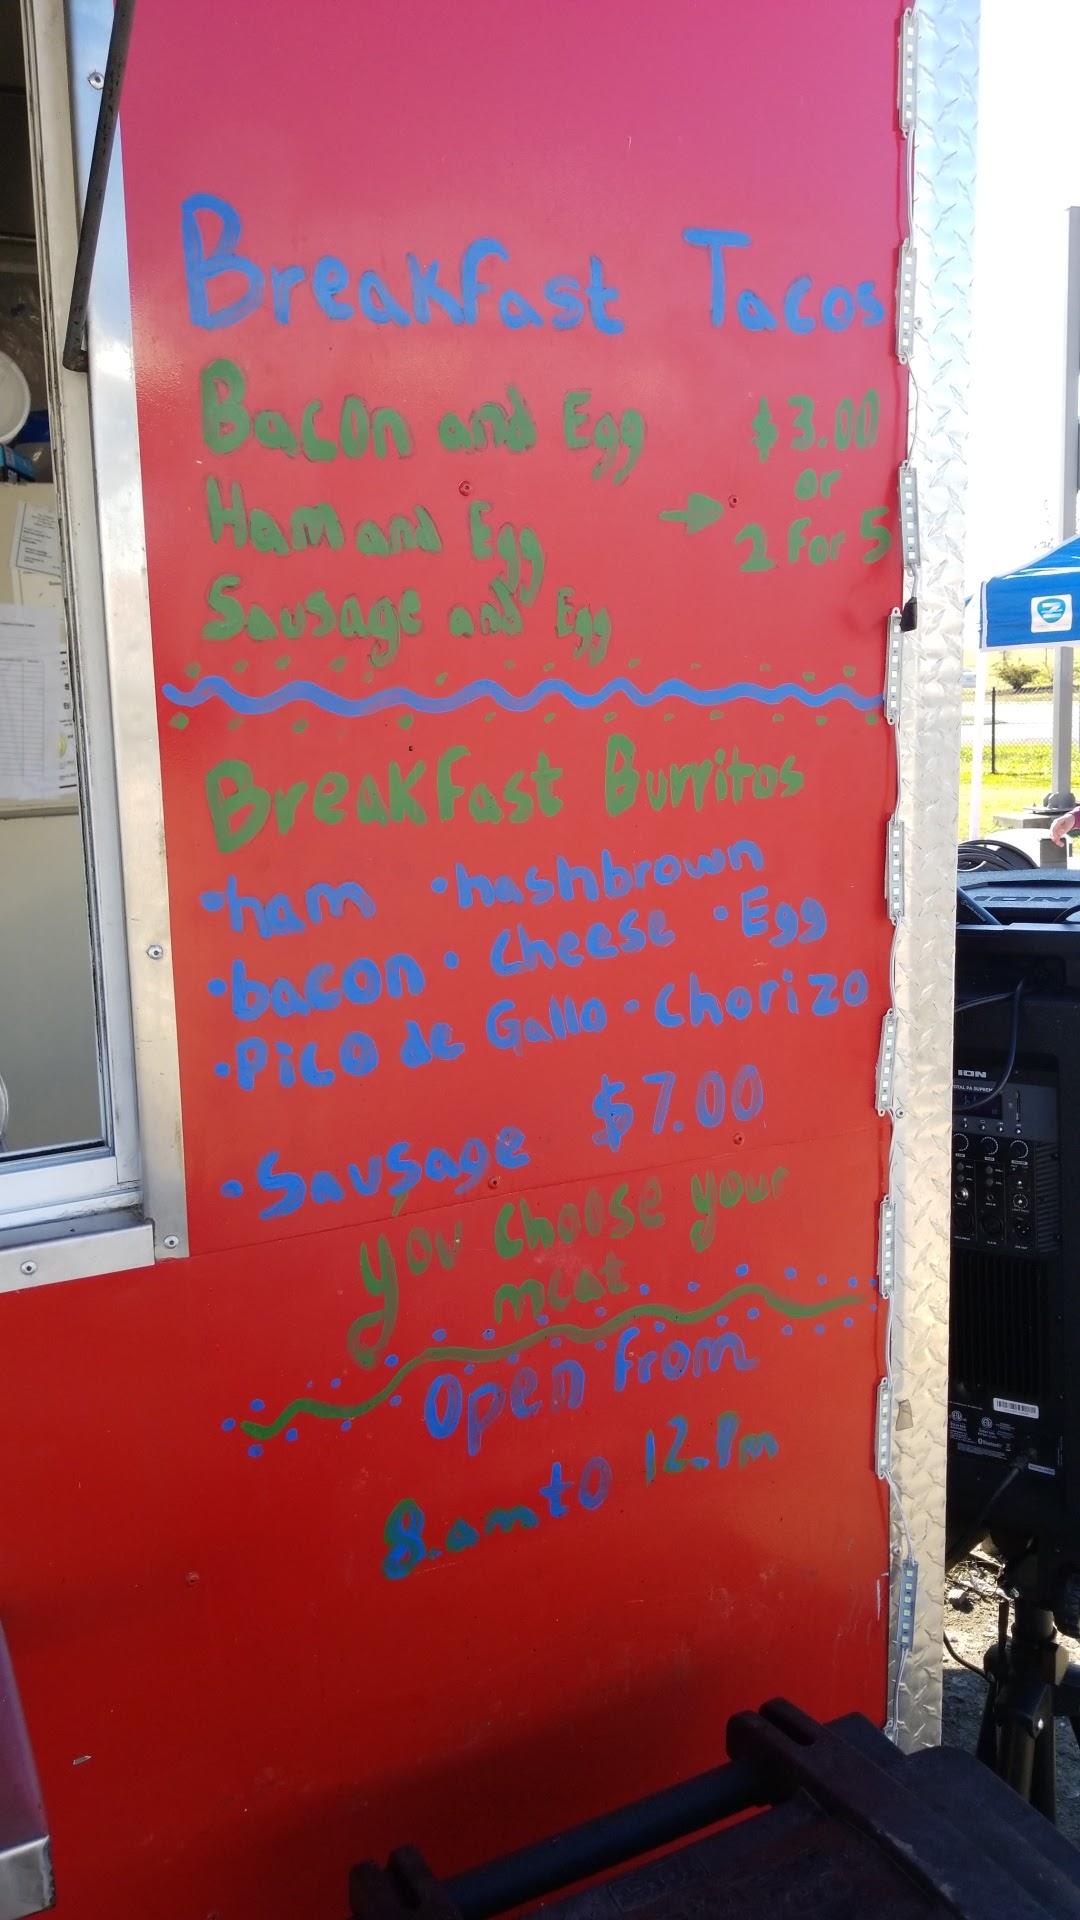 Breakfast Tacos
Bacon and Egg $3.00
or
Ham and Egg → 2 For 5
Sausage and Egg
Breakfast Burritos
•ham •hashbrown
•bacon • Cheese • Egg
•Pico de Gallo • Chorizo
•Sausage $7.00
you choose your
meat
Open From
8.am to 12.Pm
ION
ION